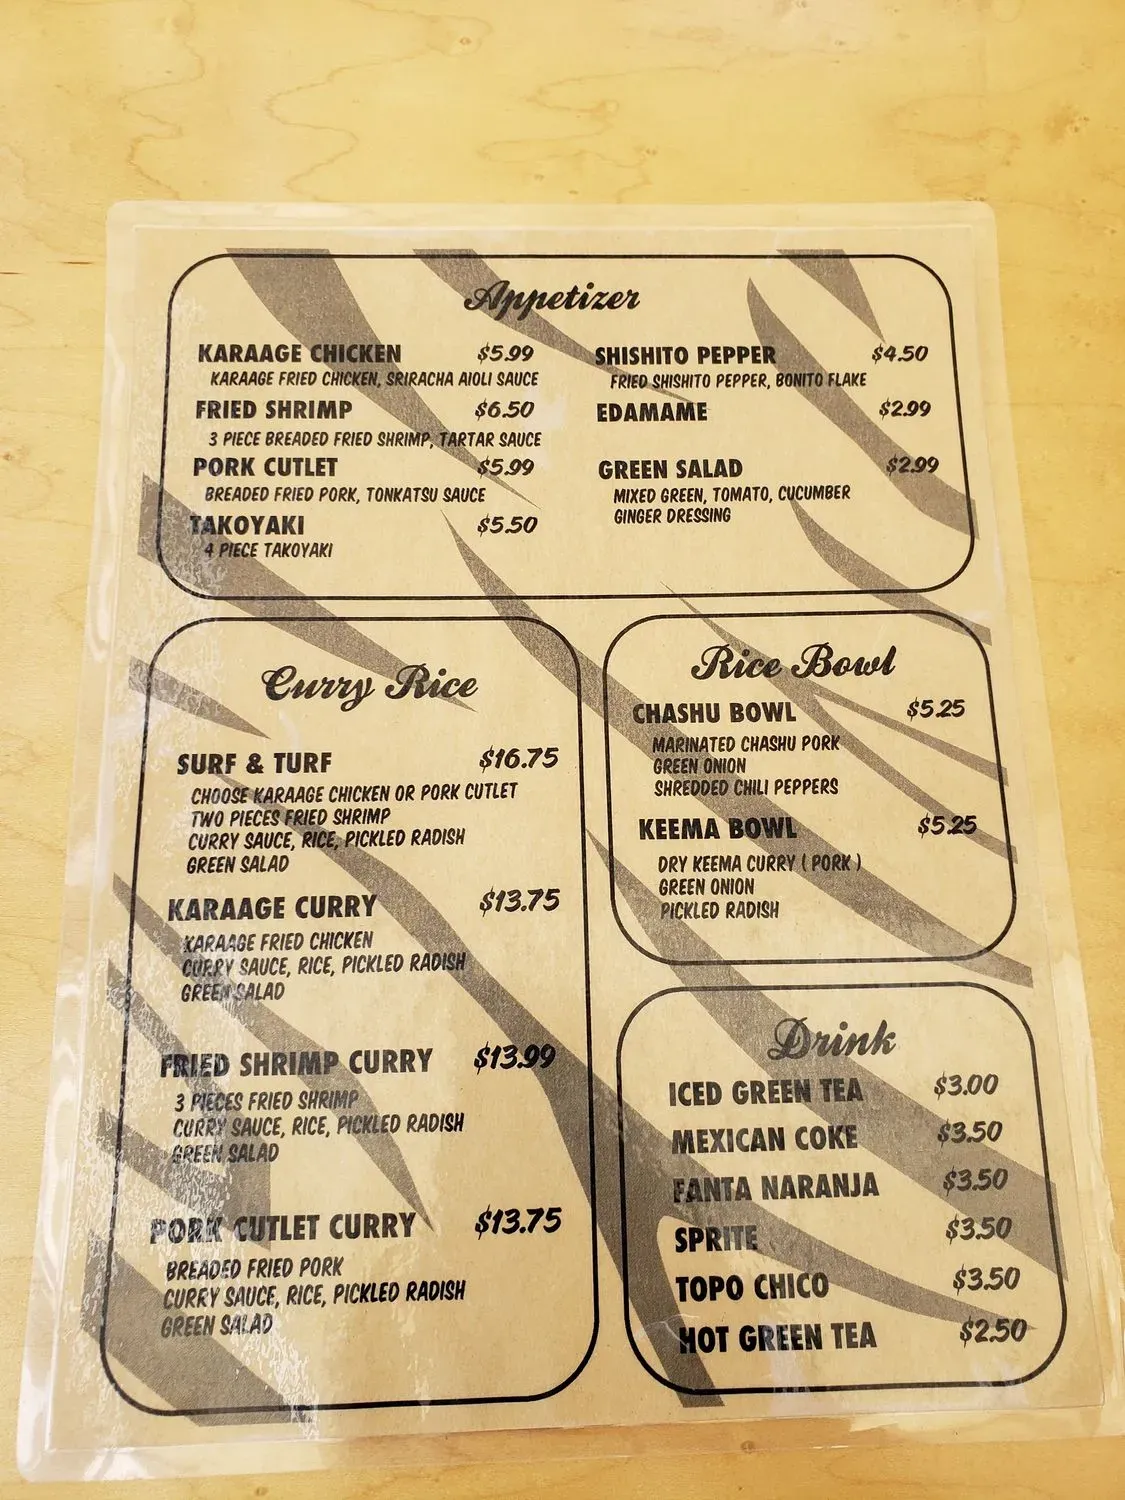 Appetizer
KARAAGE CHICKEN $5.99
KARAAGE FRIED CHICKEN, SRIRACHA AIOLI SAUCE
FRIED SHRIMP $6.50
3 PIECE BREADED FRIED SHRIMP, TARTAR SAUCE
PORK CUTLET $5.99
BREADED FRIED PORK, TONKATSU SAUCE
TAKOYAKI $5.50
4 PIECE TAKOYAKI
SHISHITO PEPPER $4.50
FRIED SHISHITO PEPPER, BONITO FLAKE
EDAMAME $2.99
GREEN SALAD $2.99
MIXED GREEN, TOMATO, CUCUMBER
GINGER DRESSING
Curry Rice
SURF & TURF $16.75
CHOOSE KARAAGE CHICKEN OR PORK CUTLET
TWO PIECES FRIED SHRIMP
CURRY SAUCE, RICE, PICKLED RADISH
GREEN SALAD
KARAAGE CURRY $13.75
KARAAGE FRIED CHICKEN
CURRY SAUCE, RICE, PICKLED RADISH
GREEN SALAD
FRIED SHRIMP CURRY $13.99
3 PIECES FRIED SHRIMP
CURRY SAUCE, RICE, PICKLED RADISH
GREEN SALAD
PORK CUTLET CURRY $13.75
BREADED FRIED PORK
CURRY SAUCE, RICE, PICKLED RADISH
GREEN SALAD
Rice Bowl
CHASHU BOWL $5.25
MARINATED CHASHU PORK
GREEN ONION
SHREDDED CHILI PEPPERS
KEEMA BOWL $5.25
DRY KEEMA CURRY ( PORK )
GREEN ONION
PICKLED RADISH
Drink
ICED GREEN TEA $3.00
MEXICAN COKE $3.50
FANTA NARANJA $3.50
SPRITE $3.50
TOPO CHICO $3.50
HOT GREEN TEA $2.50